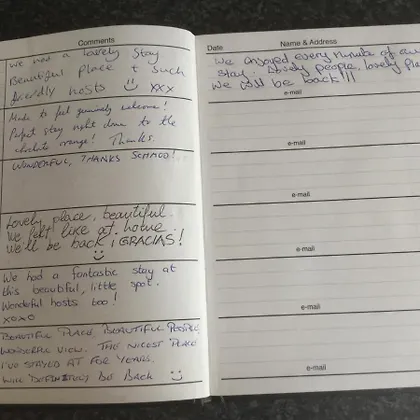 Comments
We had a lovely stay
Beautiful place + such
friendly hosts xxx
Made to feel genuinely welcome!
Perfect stay right down to the
chocolate orange! Thanks.
WONDERFUL, THANKS
Lovely place, beautiful.
We felt like at home
We'll be back ¡GRACIAS!
We had a fantastic stay at
this beautiful, little spot.
Wonderful hosts too!
xoxo
BEAUTIFUL PLACE, BEAUTIFUL PEOPLE,
WONDERFUL VIEW. THE NICEST PLACE
I'VE STAYED AT FOR YEARS.
WILL DEFINITELY BE BACK
Date Name & Address
We enjoyed every minute of our
stay. Lovely people, lovely
We will be back!!!
e-mail
e-mail
e-mail
e-mail
e-mail
e-mail